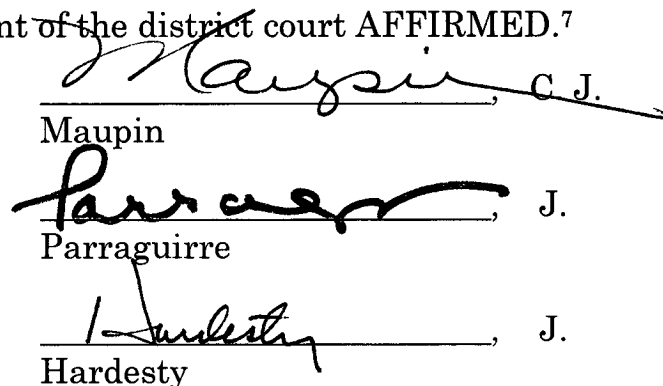 nt of the district court AFFIRMED.⁷
Maupin, C.J.
Maupin
Parraguirre, J.
Parraguirre
Hardesty, J.
Hardesty